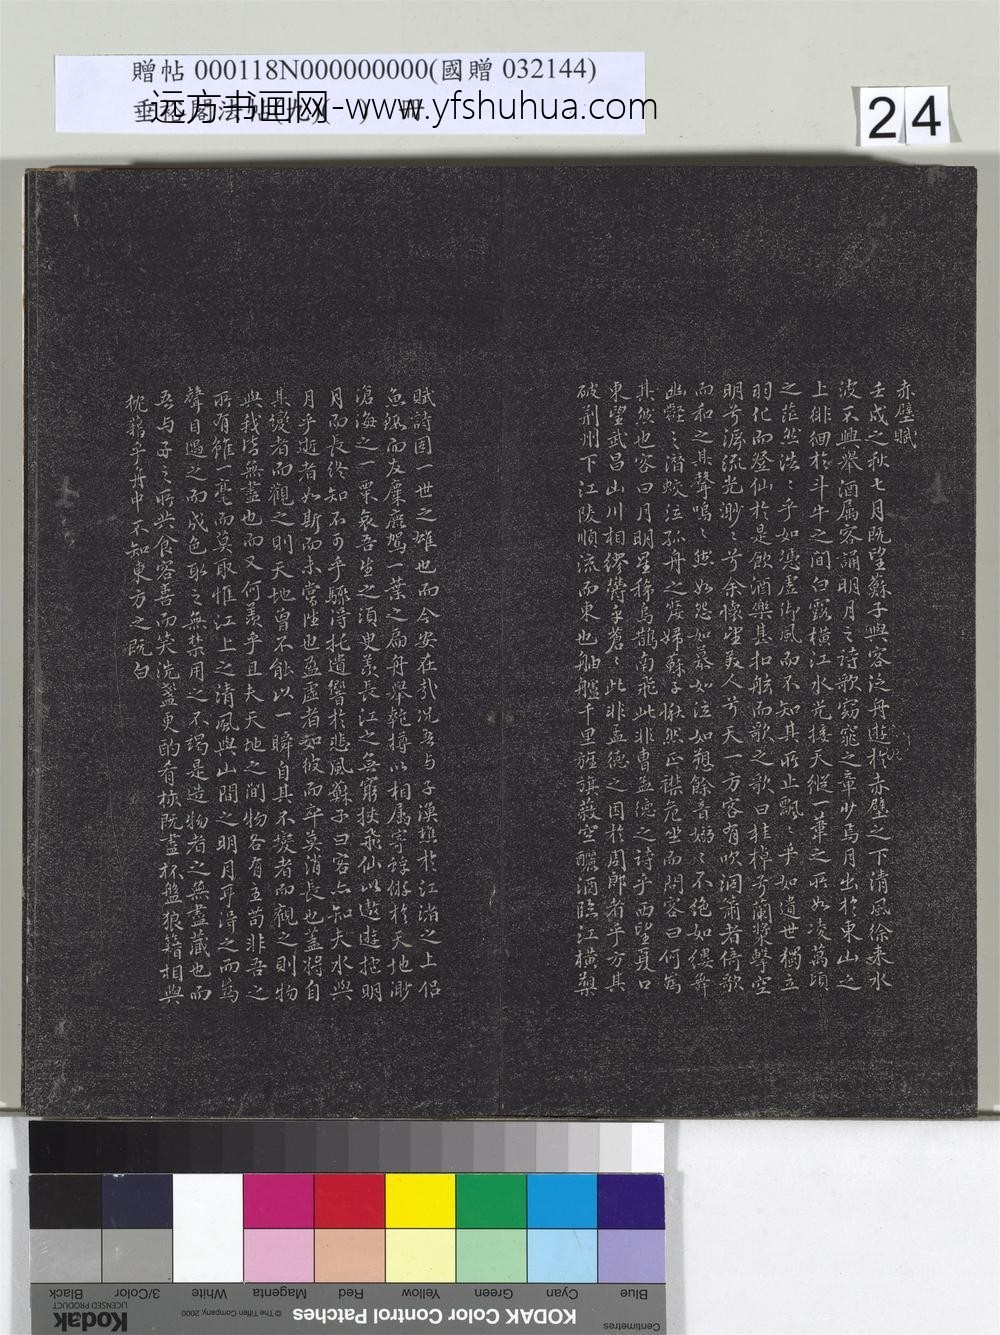 贈帖 000118N000000000(國贈 032144)
远方书画网-www.yfshuhua.com
24
赤壁賦
壬戌之秋七月既望蘇子與客泛舟遊於赤壁之下清風徐来水
波不興舉酒属客誦明月之詩歌窈窕之章少焉月出於東山之
上徘徊於斗牛之間白露橫江水光接天縱一葦之所如凌萬頃
之茫然浩〻乎如馮虛御風而不知其所止飄〻乎如遺世獨立
羽化而登仙於是飲酒樂甚扣舷而歌之歌曰桂棹兮蘭槳擊空
明兮泝流光渺〻兮余懷望美人兮天一方客有吹洞簫者倚歌
而和之其聲嗚〻然如怨如慕如泣如訴餘音嫋〻不絕如縷舞
幽壑之潛蛟泣孤舟之嫠婦蘇子愀然正襟危坐而問客曰何為
其然也客曰月明星稀烏鵲南飛此非曹孟德之詩乎西望夏口
東望武昌山川相繆鬱乎蒼〻此非孟德之困於周郎者乎方其
破荆州下江陵順流而東也舳艫千里旌旗蔽空釃酒臨江橫槊
賦詩固一世之雄也而今安在哉况吾与子漁樵於江渚之上侣
魚鰕而友麋鹿駕一葉之扁舟舉匏樽以相属寄蜉蝣於天地渺
滄海之一粟哀吾生之須臾羨長江之無窮挟飛仙以遨遊抱明
月而長終知不可乎驟得托遺響於悲風蘇子曰客亦知夫水與
月乎逝者如斯而未嘗往也盈虛者如彼而卒莫消長也蓋將自
其變者而觀之則天地曾不能以一瞬自其不變者而觀之則物
與我皆無盡也而又何羨乎且夫天地之間物各有主苟非吾之
所有雖一毫而莫取惟江上之清風與山間之明月耳得之而為
聲目遇之而成色取之無禁用之不竭是造物者之無盡藏也而
吾与子之所共食客喜而笑洗盞更酌肴核既盡杯盤狼籍相與
枕藉乎舟中不知東方之既白
Blue
Cyan
Green
Yellow
Red
Magenta
White
3/Color
Black
Centimetres
KODAK Color Control Patches
© The Tiffen Company, 2000
Kodak
LICENSED PRODUCT